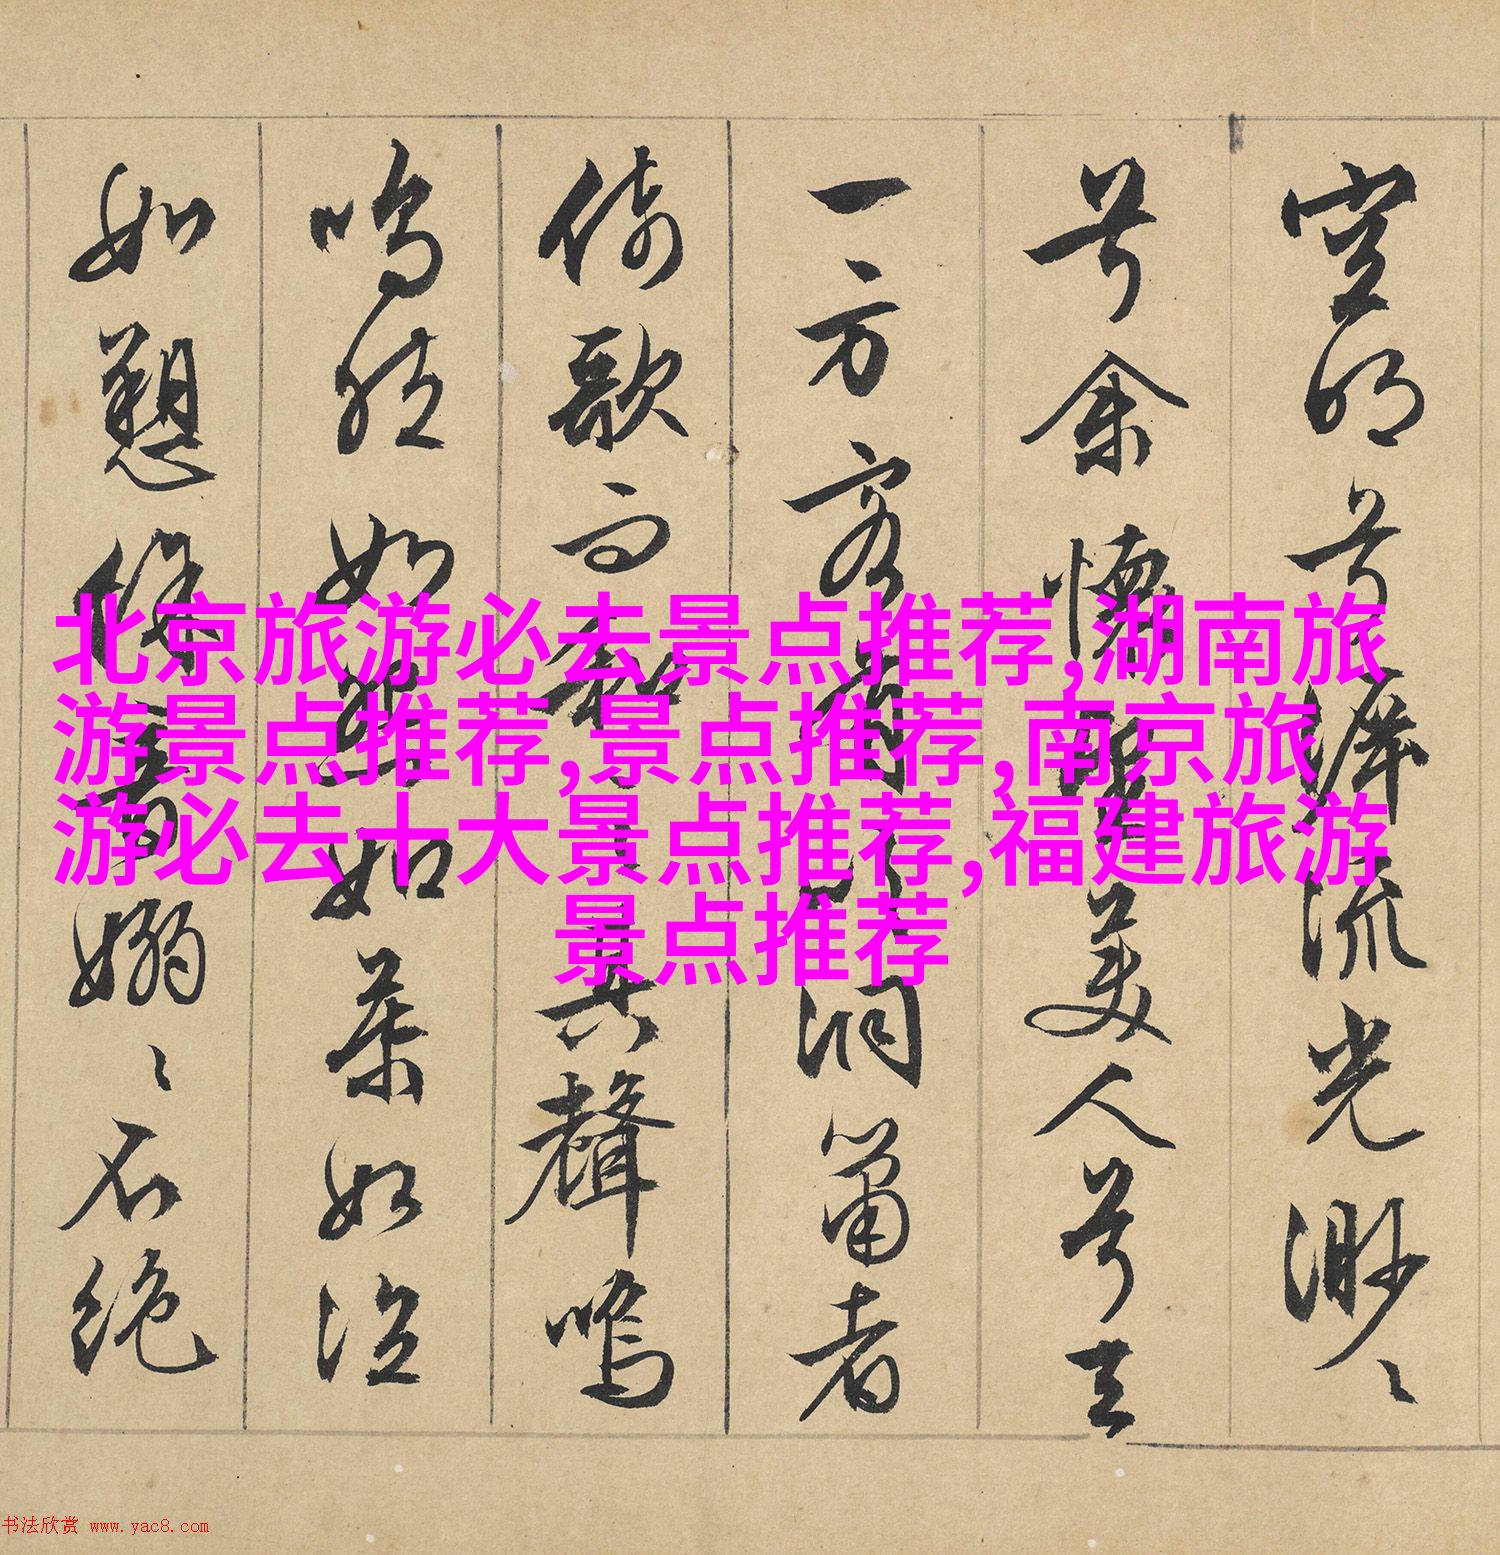 空明兮溯流光渺〻
兮余懷　　美人兮天
一方客有　洞簫者
倚歌而和　其聲嗚
嗚然如怨如慕如泣
如愬餘音嫋〻不絶
北京旅游必去景点推荐,湖南旅
游景点推荐,景点推荐,南京旅
游必去十大景点推荐,福建旅游
景点推荐
书法欣赏 www.yac8.com